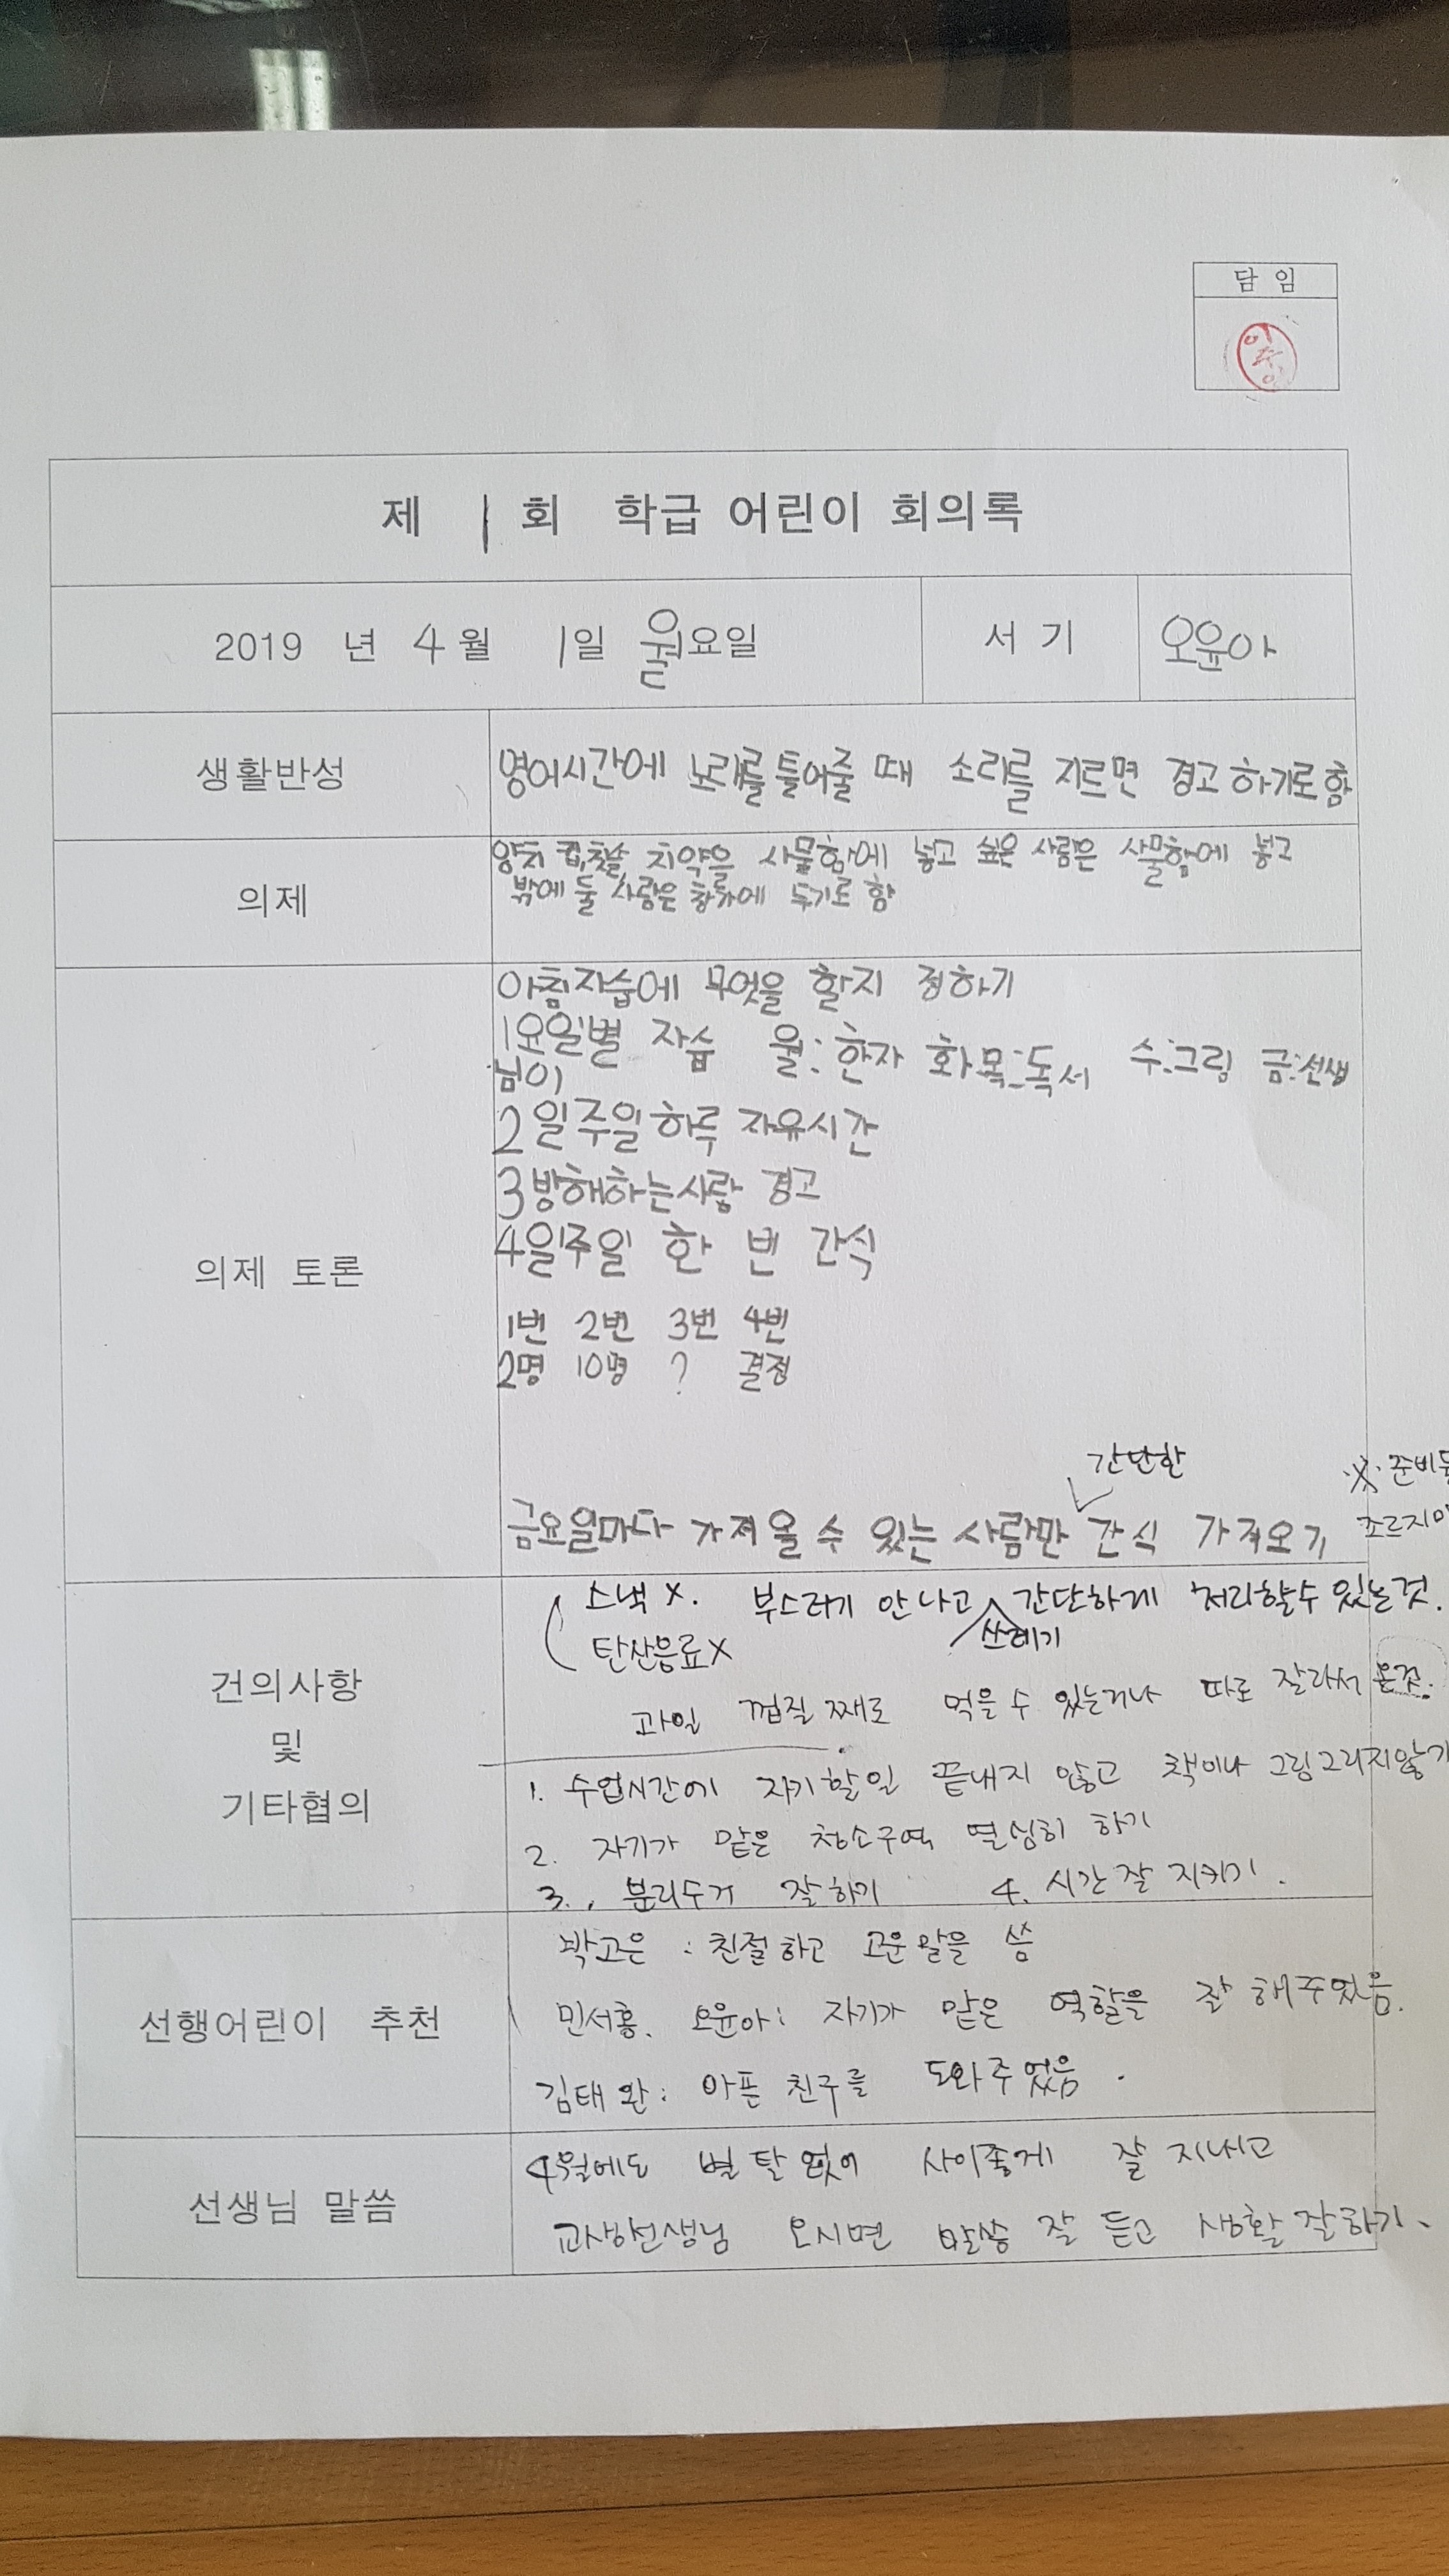 담 임
제 1 회 학급 어린이 회의록
2019 년 4월 1일 월요일 서 기 오윤아
생활반성
영어시간에 노래를 틀어줄 때 소리를 지르면 경고 하기로 함
의제
양치 컵,칫솔 치약을 사물함에 놓고 싶은 사람은 사물함에 놓고
밖에 둘 사람은 창가에 두기로 함
의제 토론
아침자습에 무엇을 할지 정하기
1요일별 자습 월:한자 화목:독서 수:그림 금:선생
님이
2일주일하루 자유시간
3방해하는사람 경고
4일주일 한 번 간식
1번 2번 3번 4번
2명 10명 ? 결정
간단한
※ 준비물
금요일마다 가져올 수 있는 사람만 간식 가져오기
조르지
건의사항
및
기타협의
스낵 X. 부스러기 안나고 간단하게 처리할수 있는것.
쓰레기
탄산음료X
과일 껍질 째로 먹을수 있는거나 따로 잘라서 온것.
1. 수업시간에 자기할일 끝내지 않고 책이나 그림그리지않기
2. 자기가 맡은 청소구역 열심히 하기
3. 분리수거 잘하기 4. 시간 잘 지키기.
선행어린이 추천
박고은 : 친절하고 고운말을 씀
민서홍. 오윤아: 자기가 맡은 역할을 잘 해주었음.
김태완: 아픈 친구를 도와주었음.
선생님 말씀
4월에도 별탈없이 사이좋게 잘 지내고
교생선생님 오시면 말씀 잘 듣고 생활잘하기.